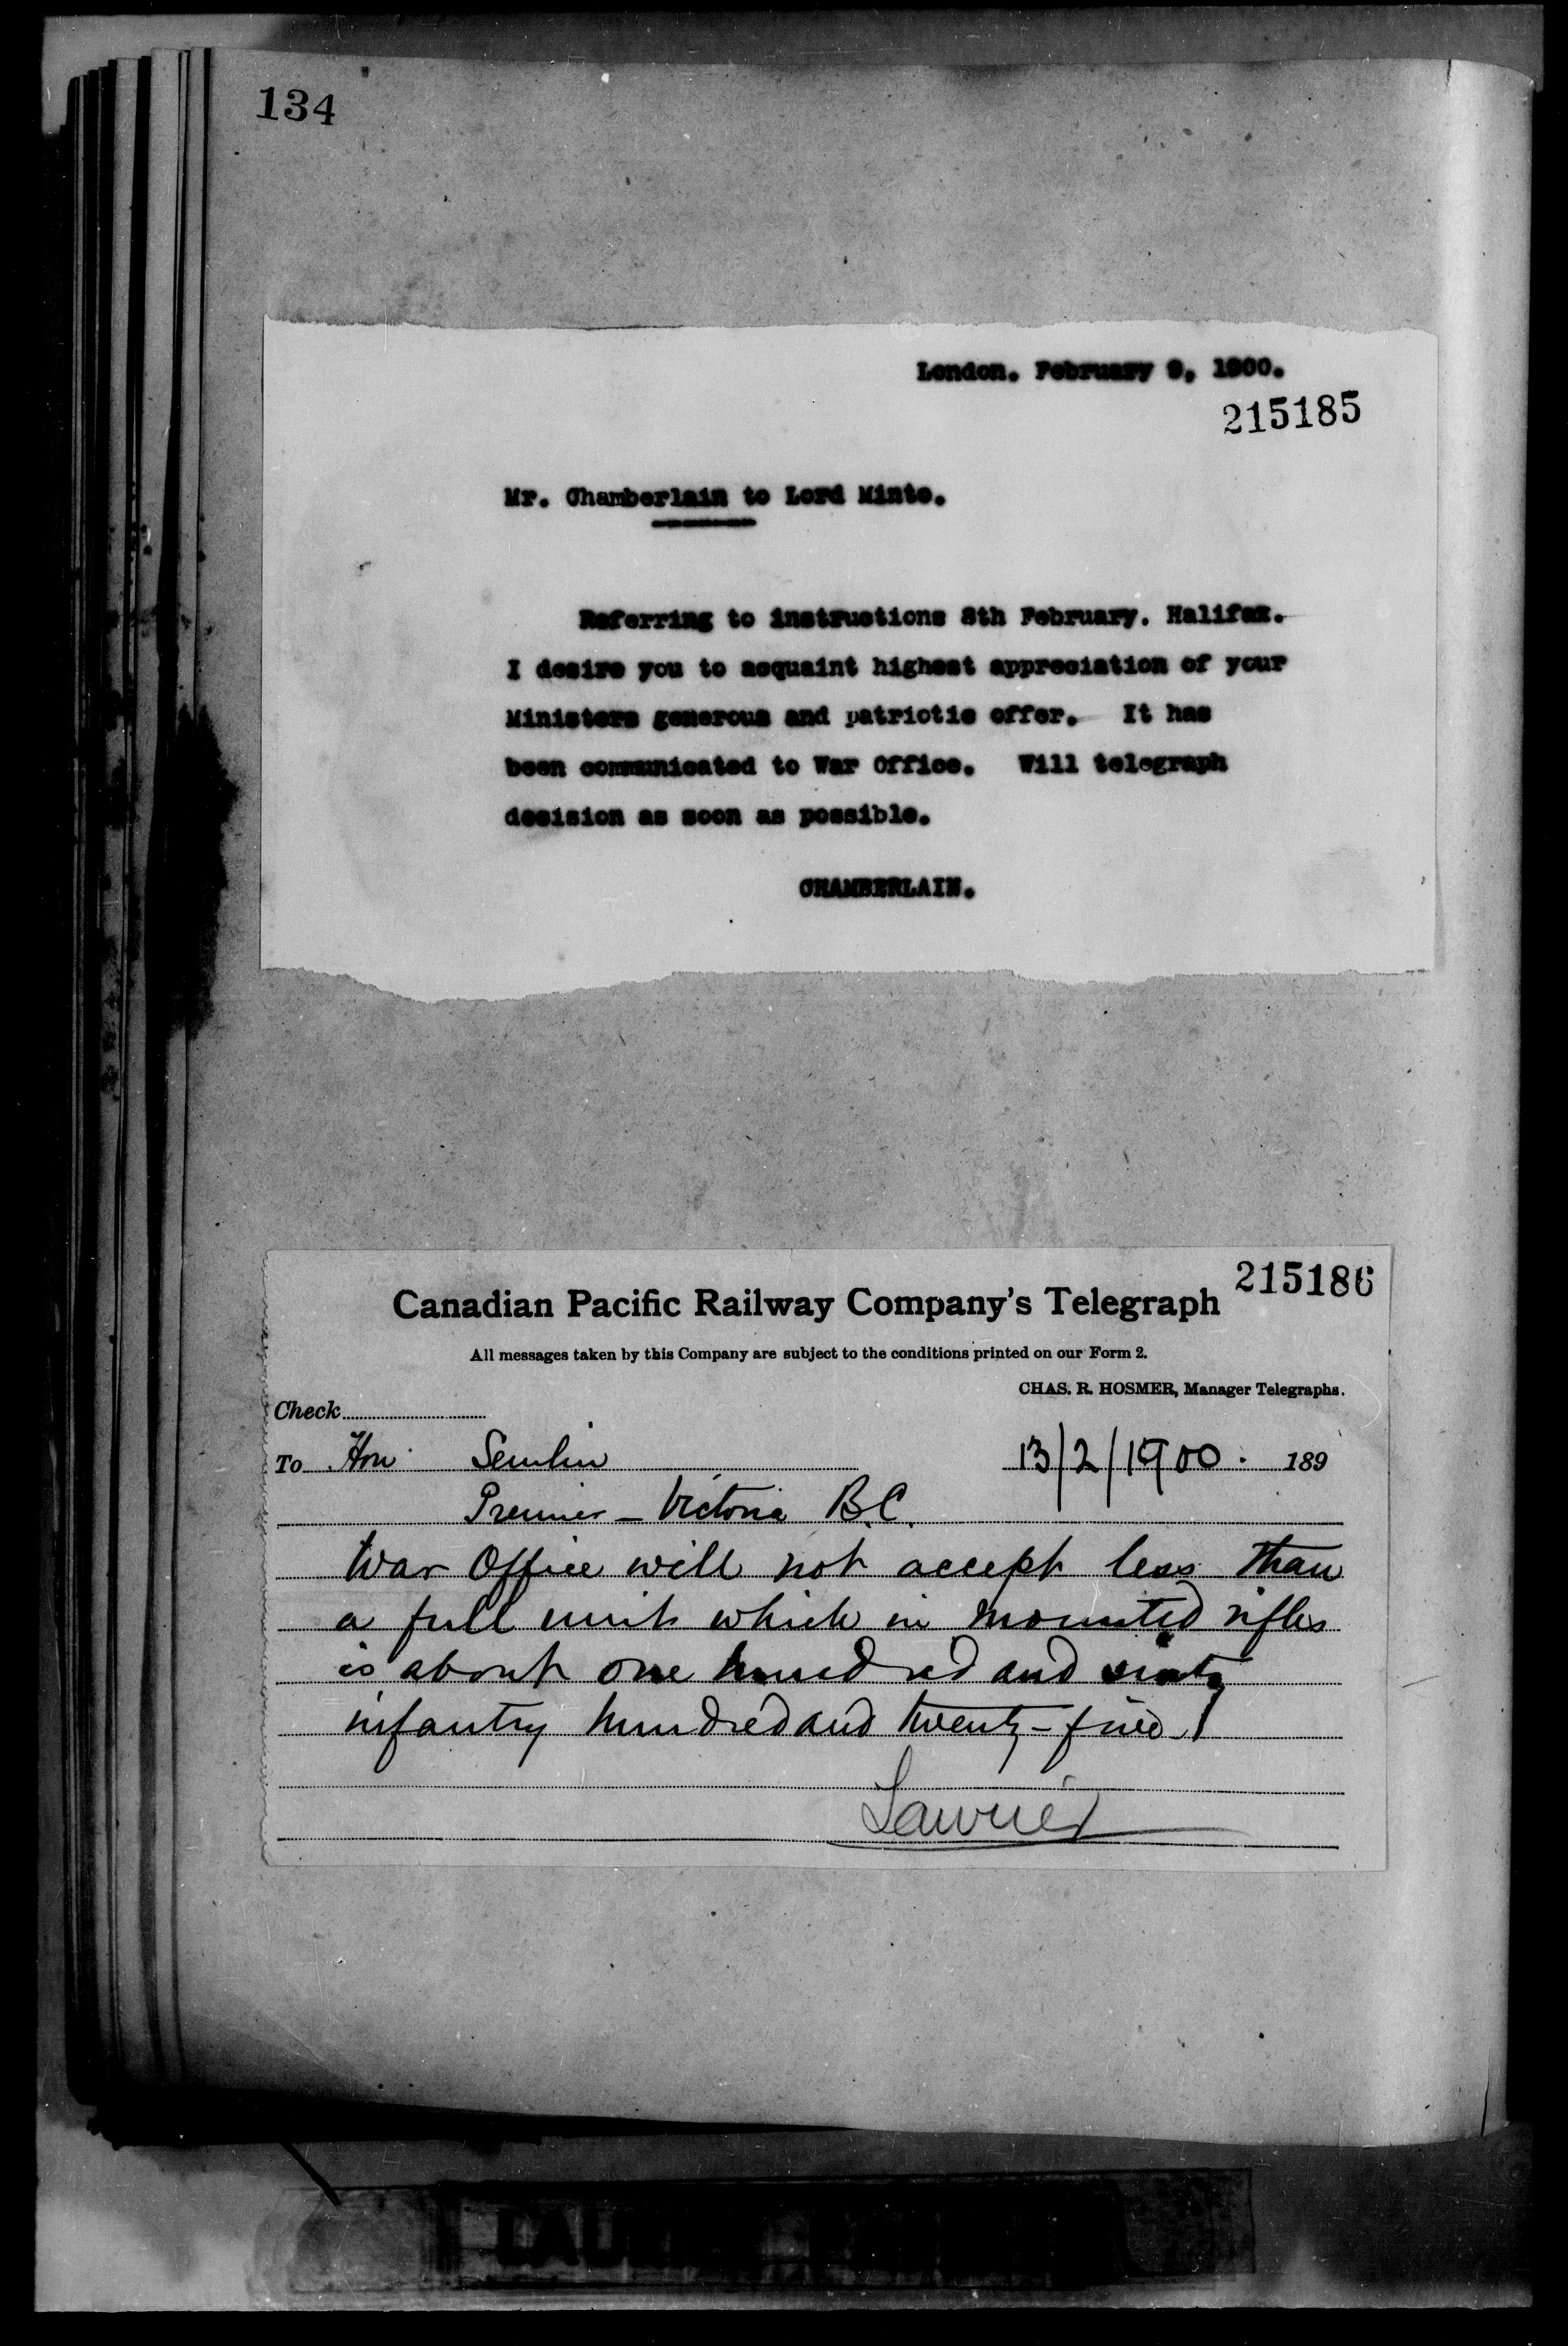 134
London. February 9, 1900.
215185
Mr. Chamberlain to Lord Minto.
Referring to instructions 8th February. Halifax.
I desire you to acquaint highest appreciation of your
Ministers generous and patriotic offer. It has
been communicated to War Office. Will telegraph
decision as soon as possible.
CHAMBERLAIN.
215186
Canadian Pacific Railway Company's Telegraph
All messages taken by this Company are subject to the conditions printed on our Form 2.
CHAS. R. HOSMER, Manager Telegraphs.
Check
To Hon Semlin 13/2/1900. 189
Premier - Victoria B.C.
War Office will not accept less than
a full unit which in mounted rifles
is about one hundred and sixty
infantry hundred and twenty-five
Laurier